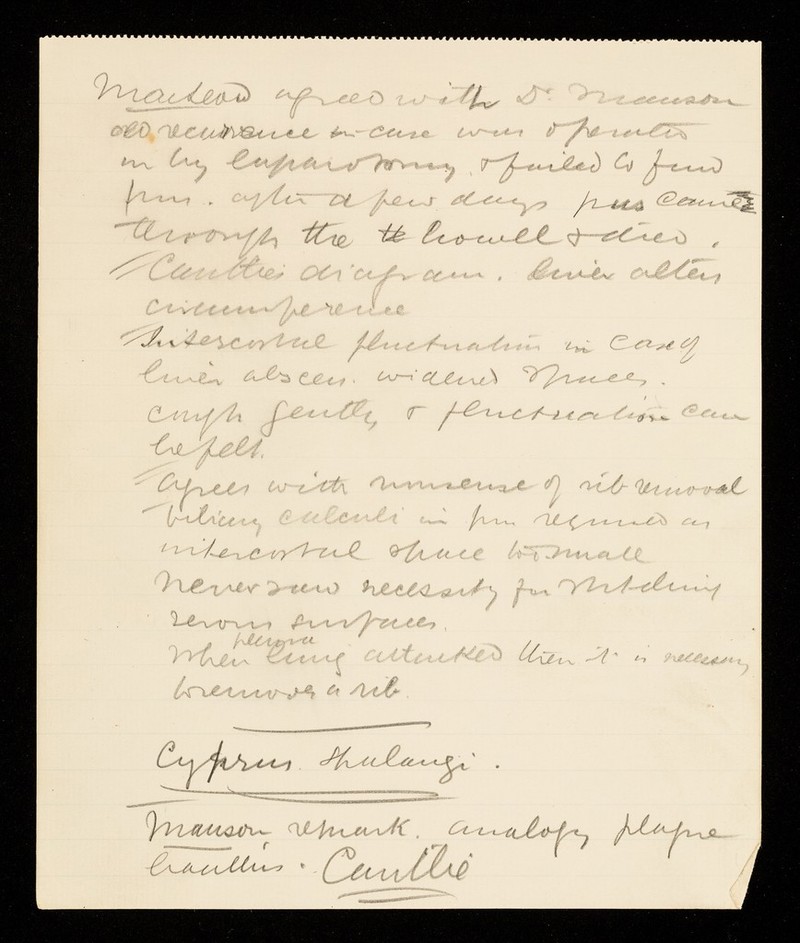 Macleod agreed with Dr. Manson
recurrence in case was operated
on by laparotomy & failed to find
pus. after a few days pus came
through the bowel & died.
Cantlie's diagram. liver alters
circumference
Intercostal fluctuation in case of
liver abscess. widened spaces.
cough gently & fluctuation can
be felt.
Agrees with nonsense of rib removal
biliary calculi in pus required as
intercostal space too small
Never saw necessity for stitching
serous surfaces.
pleura
When lung attacked then it is necessary
to remove a rib.
Cyprus
Manson remark. analogy plague
bacillus. Cantlie